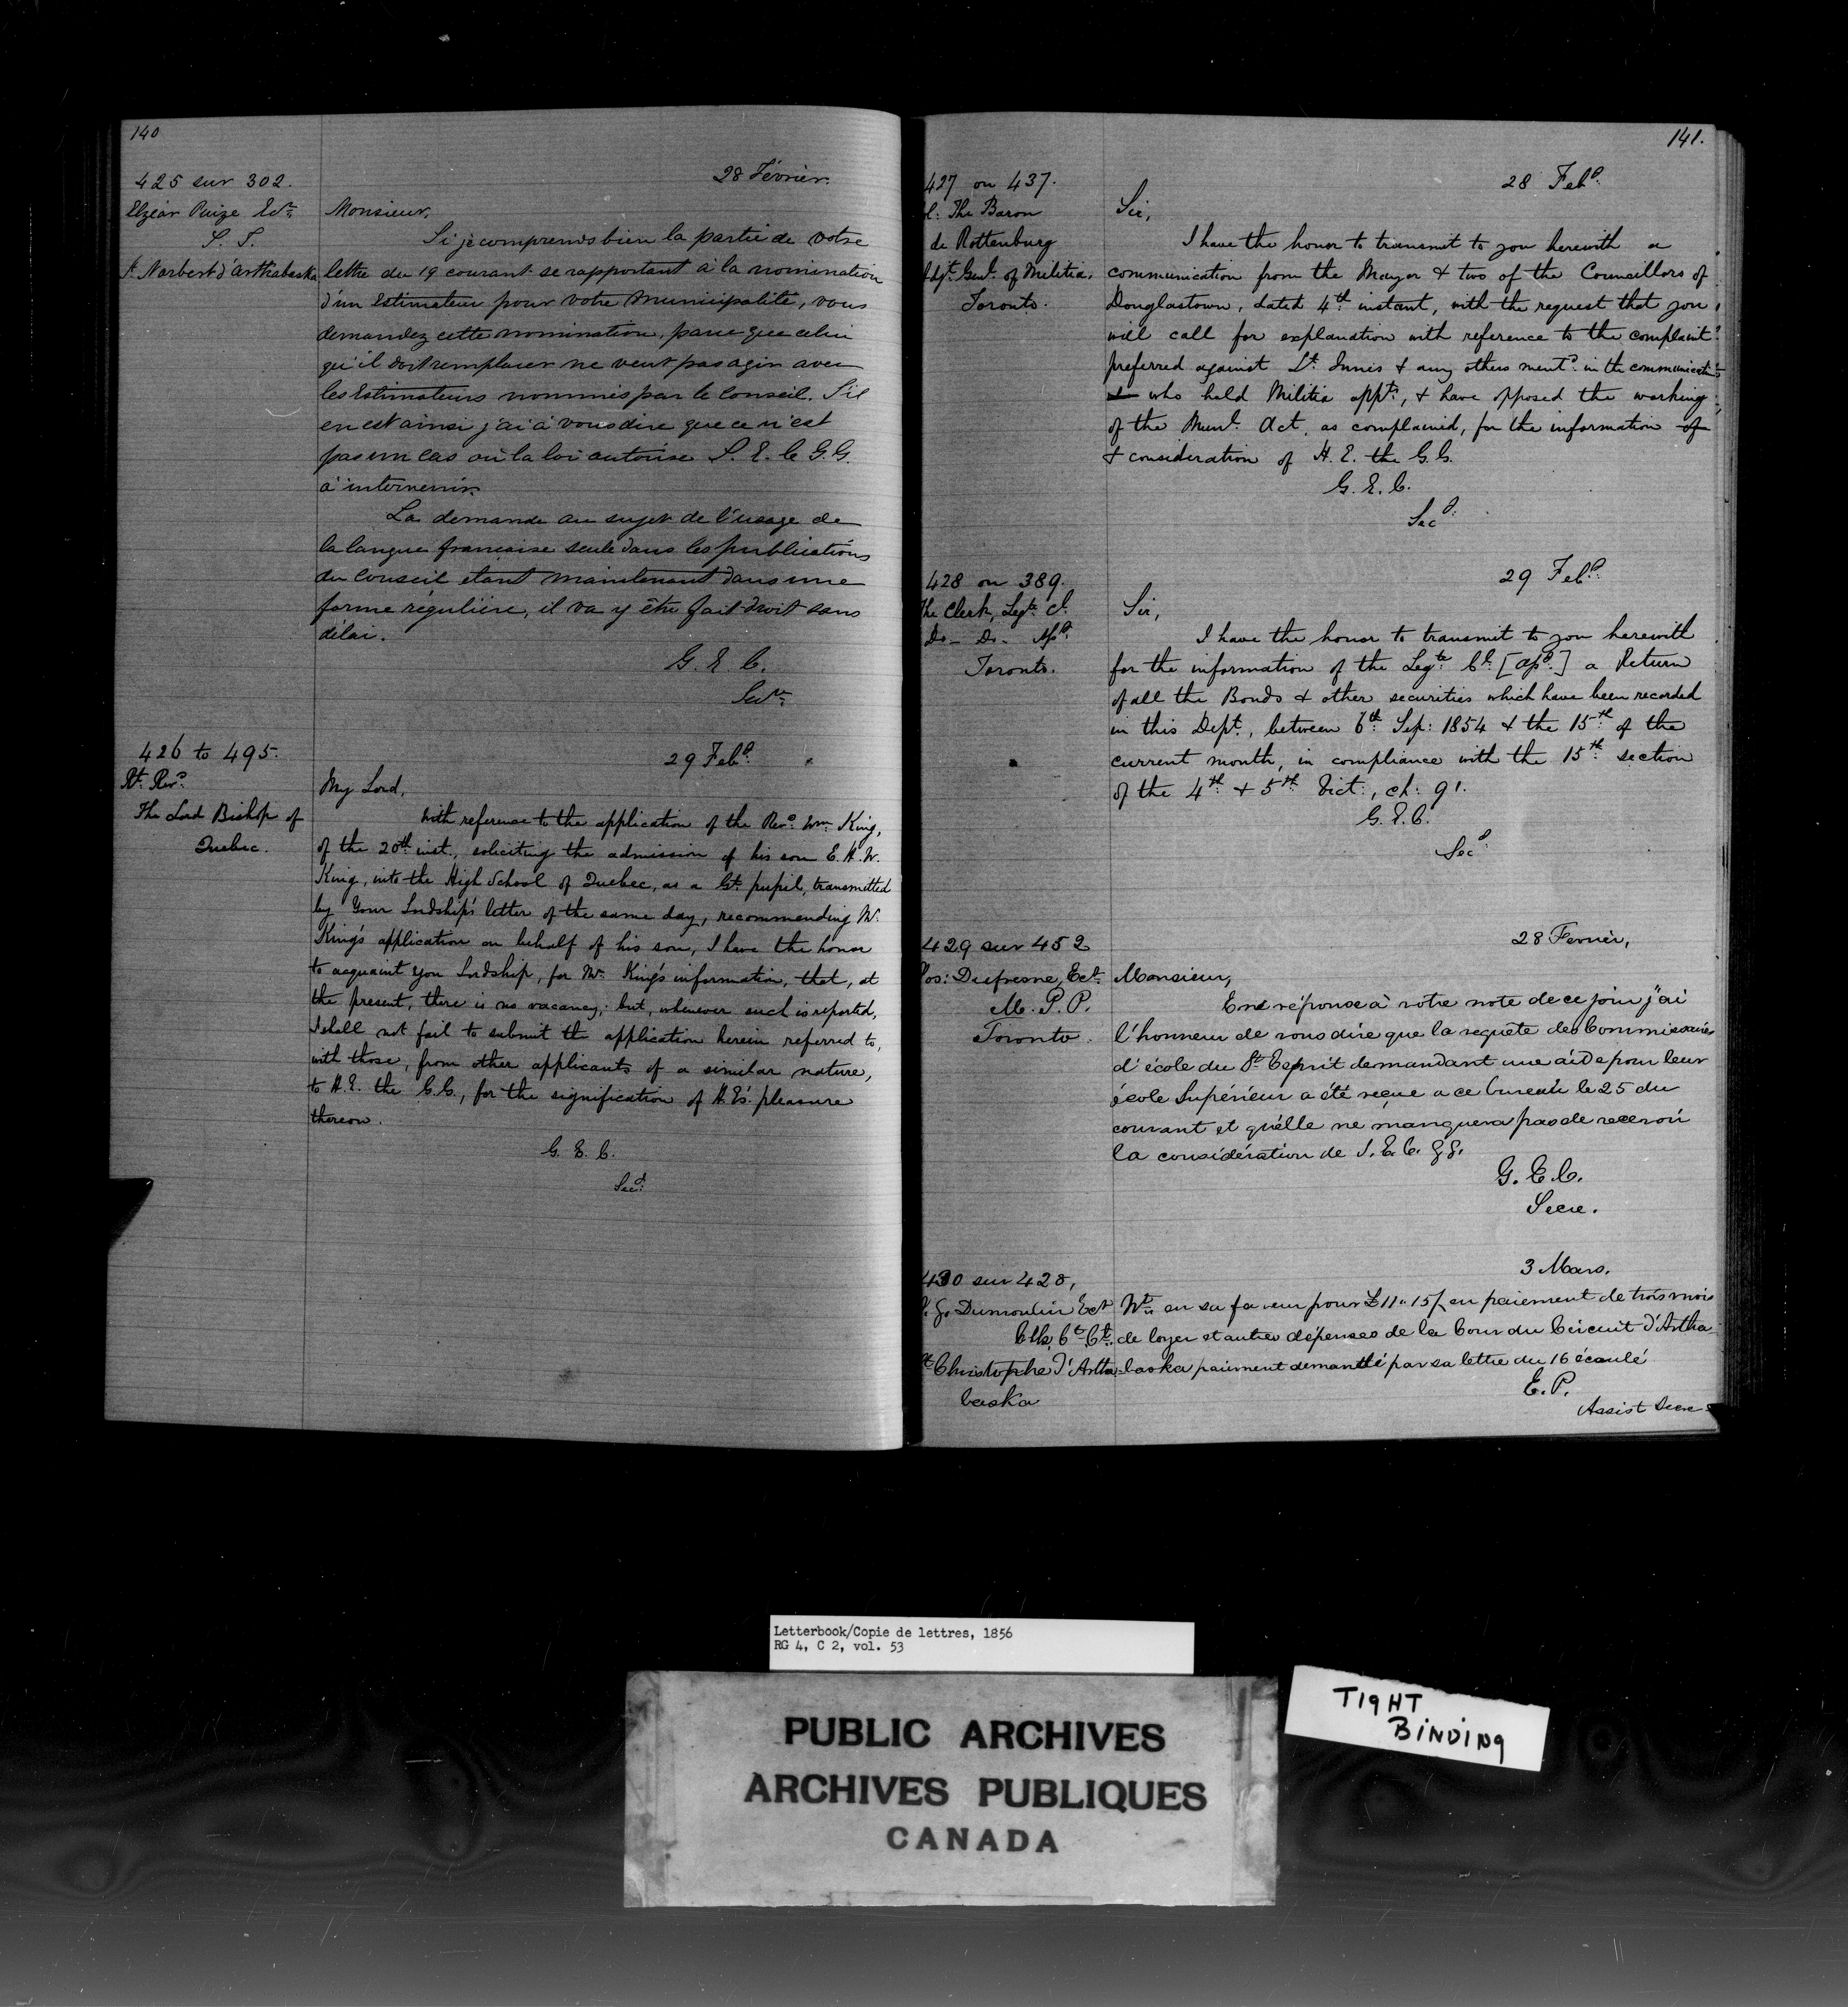 140
425 sur 302.
28 Février.
Elzéar Puize Ecr.
S. T.
St. Norbert d'arthabaska
Monsieur,
Si je comprends bien la partie de votre
lettre du 19 courant se rapportant à la nomination
d'un Estimateur pour votre Municipalité, vous
demandez cette nomination, parce que celui
qu'il doit remplacer ne veut pas agir avec
les Estimateurs nommés par le Conseil. S'il
en est ainsi j'ai à vous dire que ce n'est
pas un cas où la loi autorise S. E. le G. G.
à intervenir.
La demande au sujet de l'usage de
la langue française seule dans les publications
du Conseil étant maintenant dans une
forme régulière, il va y être fait droit sans
délai.
G. E. C.
Secre.
426 to 495.
29 Feby.
Rt. Revd.
The Lord Bishop of
Quebec.
My Lord,
With reference to the application of the Revd. Wm. King,
of the 20th inst., soliciting the admission of his son E. H. W.
King, into the High School of Quebec, as a Gt. pupil, transmitted
by Your Lordship's letter of the same day, recommending Mr.
King's application on behalf of his son, I have the honor
to acquaint you Lordship, for Mr. King's information, that, at
the present, there is no vacancy; but, whenever such is reported,
I shall not fail to submit the application herein referred to,
with those, from other applicants of a similar nature,
to H. E. the G. G., for the signification of H. E's. pleasure
thereon.
G. E. C.
Secy.
141.
427 on 437.
28 Feby.
Col. The Baron
de Rottenburg
Adjt. Genl. of Militia,
Toronto.
Sir,
I have the honor to transmit to you herewith a
communication from the Mayor & two of the Councillors of
Douglastown, dated 4th instant, with the request that you
will call for explanation with reference to the complaint
preferred against Lt. Innis & any others mentd. in the communication
& who hold Militia appts., & have opposed the working
of the Munl. Act, as complained, for the information of
& consideration of H. E. the G. G.
G. E. C.
Secy.
428 on 389.
29 Feby.
The Clerk, Legte. Cl.
Do - Do - Asy.
Toronto.
Sir,
I have the honor to transmit to you herewith
for the information of the Legte. Cl. [asy.] a Return
of all the Bonds & other securities which have been recorded
in this Dept., between 6th. Sep: 1854 & the 15th. of the
current month, in compliance with the 15th. section
of the 4th. & 5th. Vict:, ch: 91.
G. E. C.
Secy.
429 sur 452
28 Fevrier,
Jos: Dufresne, Ect.
M. P. P.
Toronto.
Monsieur,
En réponse à votre note de ce jour j'ai
l'honneur de vous dire que la requête des Commissaires
d'école du St. Esprit demandant une aide pour leur
école Supérieur a été reçue a ce bureau le 25 du
courant et qu'elle ne manquera pas de recevoir
la considération de S. E. le G. G.
G. E. C.
Secre.
430 sur 428,
3 Mars.
Dumoulin Ect
Clk Ct. Ct.
St Christophe d'Artha-
baska
Wt. en sa faveur pour £11"15/ en paiement de trois mois
de loyer et autres dépenses de la Cour du Circuit d'Artha-
baska paiement demandé par sa lettre du 16 écoulé
E. P.
Assist Secre
Letterbook/Copie de lettres, 1856
RG 4, C 2, vol. 53
PUBLIC ARCHIVES
ARCHIVES PUBLIQUES
CANADA
TIGHT
BINDING